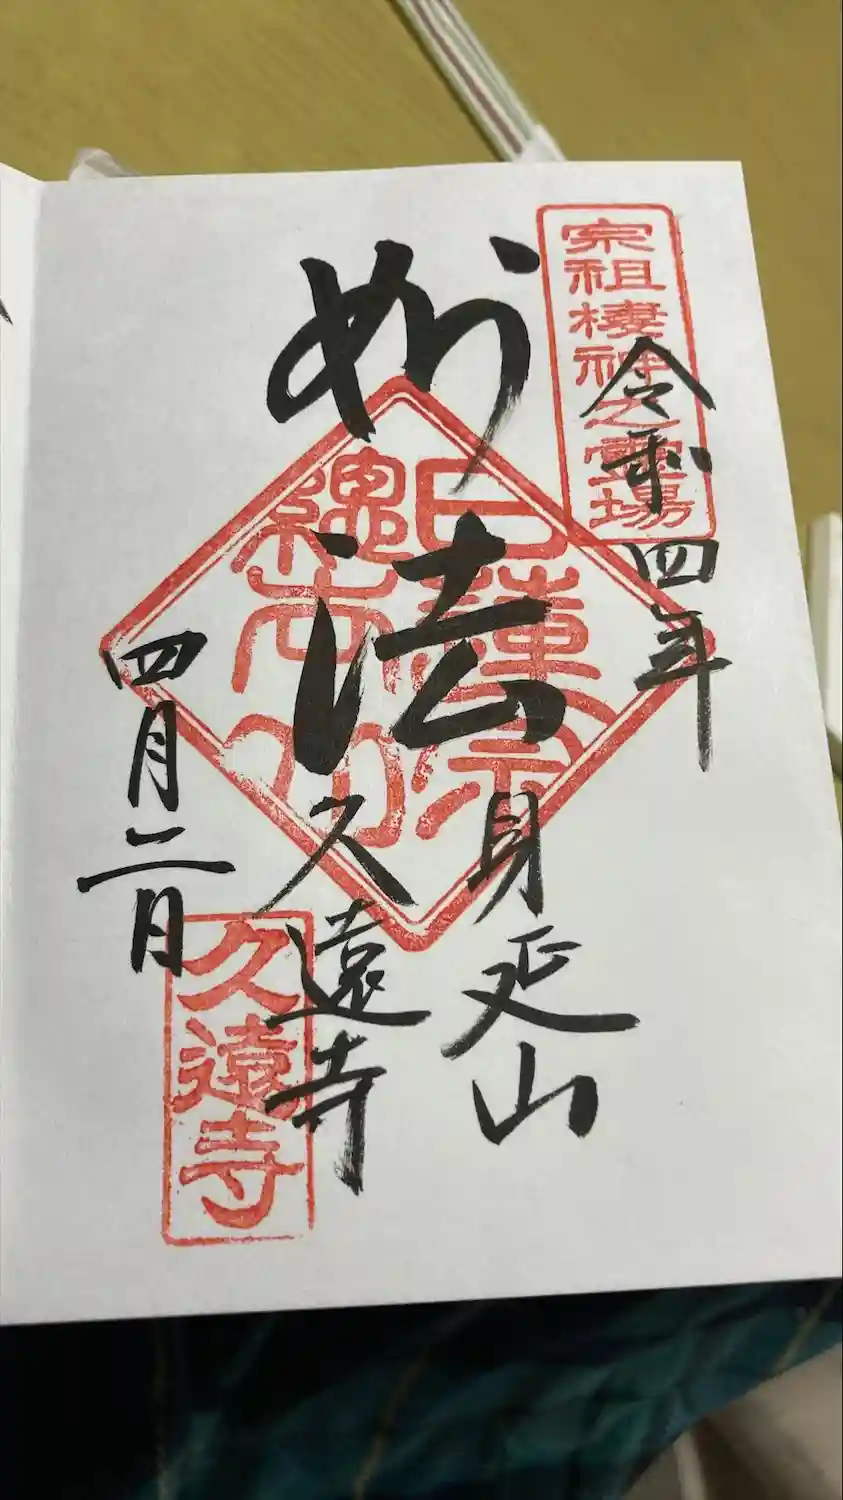 宗祖棲神之霊場
令和四年
妙法
日蓮宗
総本山
身延山
久遠寺
四月二日
久遠寺